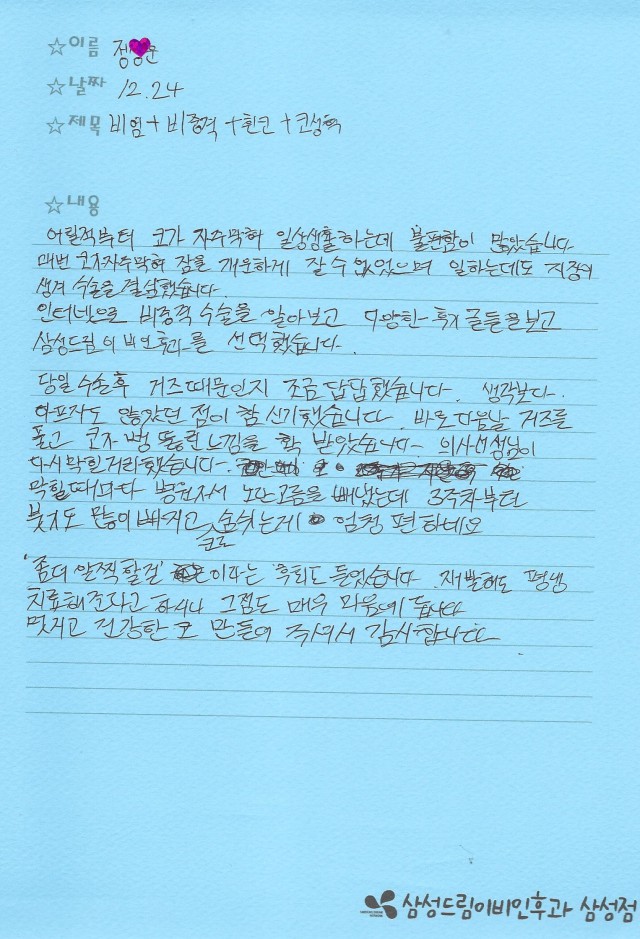 ☆이름 정♥문
☆날짜 12.24
☆제목 비염+비중격+휜코+코성형
☆내용
어릴적부터 코가 자주막혀 일상생활하는데 불편함이 많았습니다
매번 코가자주막혀 잠을 개운하게 잘수 없었으며 일하는데도 지장이
생겨 수술을 결심했습니다.
인터넷으로 비중격 수술을 알아보고 다양한 후기 글들을 보고
삼성드림이비인후과를 선택했습니다.
당일 수술후 거즈때문인지 조금 답답했습니다. 생각보다.
아프지도 않았던 점이 참 신기했습니다. 바로다음날 거즈를
풀고 코가 뻥 뚫린 느낌을 확 받았습니다. 의사선생님이
다시막힐거라했습니다.
막힐때마다 병원가서 노란고름을 빼냈는데 3주차부터
붓기도 많이 빠지고 코로 숨쉬는게 엄청 편하네요
'좀더 일찍할걸' 이라는 후회도 들었습니다. 재발해도 평생
치료해준다고 하시니 그점도 매우 마음에 듭니다
멋지고 건강한 코 만들어 주셔서 감사합니다.
삼성드림이비인후과 삼성점